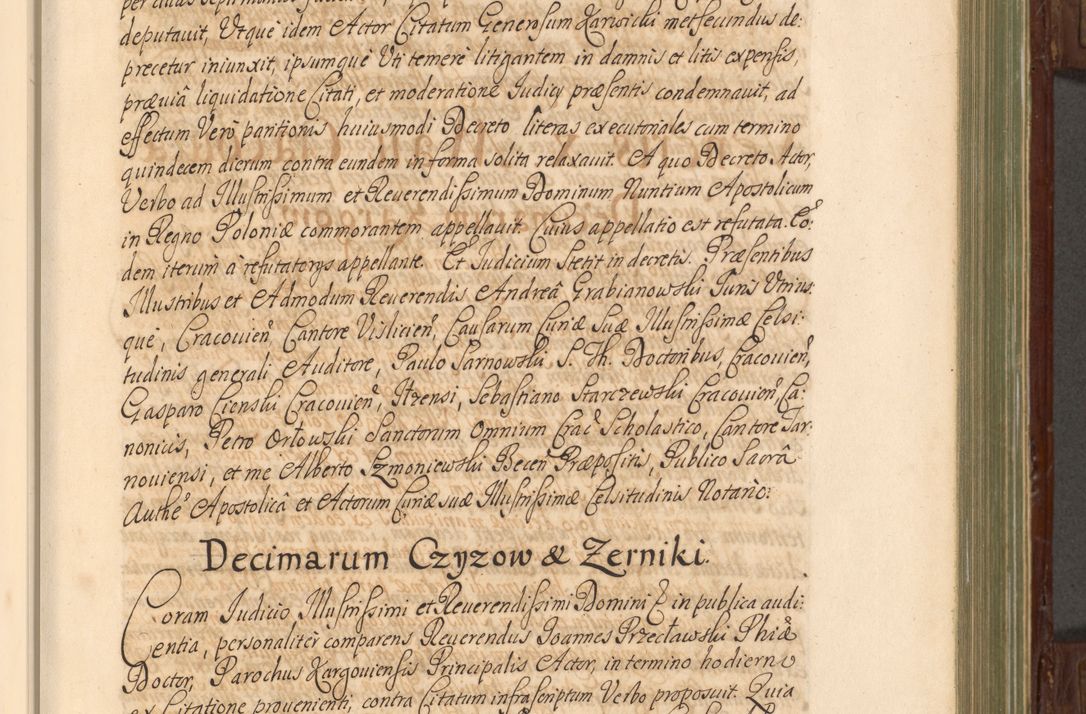 deputauit, Utque idem Actor Citatum Generosum Karwicki metsecundus de:
precetur iniunxit, ipsumque Uti temere litigantem in damnis et litis expensis,
præuiâ liquidatione Citati, et moderatione Iudicij præsentis condemnauit, ad
effectum Verò paritionis huiusmodi Decreto literas executoriales cum termino
quindecem dierum contra eundem in forma solita relaxauit. A quo Decreto Actor,
Verbo ad Illustrissimum et Reuerendissimum Dominum Nuntium Apostolicum
in Regno Poloniæ commorantem appellauit. Cuius appellatio est refutata. Eo:
dem iterum â refutatorijs appellante. Et Iudicium Stetit in decretis. Præsentibus
Illustribus et Admodum Reuerendis Andreâ Grabianowski Iuris Utrius
que, Cracouien, Cantore Vislicien, Causarum Curiæ Suæ Illustrissimæ Celsi:
tudinis generali Auditore, Paulo Sarnowski S. Th. Doctoribus, Cracouien,
Gasparo Cienski Cracouien, Itzensi, Sebastiano Starczewski Cracouien, Ca:
nonicis, Petro Orłowski Sanctorum Omnium Crac Scholastico, Cantore Tar:
nouiensi, et me Alberto Szmoniewski Becen Præpositis, Publico Sacrâ
Authe Apostolicâ et Actorum Curiæ suæ Illustrissimæ Celsitudinis Notario:
Decimarum Czyzow & Zerniki.
Coram Iudicio Illustrissimi et Reuerendissimi Domini & in publica audi:
entia, personaliter comparens Reuerendus Ioannes Przecławski Phiæ
Doctor, Parochus Kargouiensis Principalis Actor, in termino hodierno
ex Citatione proueniente, contra Citatum infrascriptum Verbo proposuit. Quia